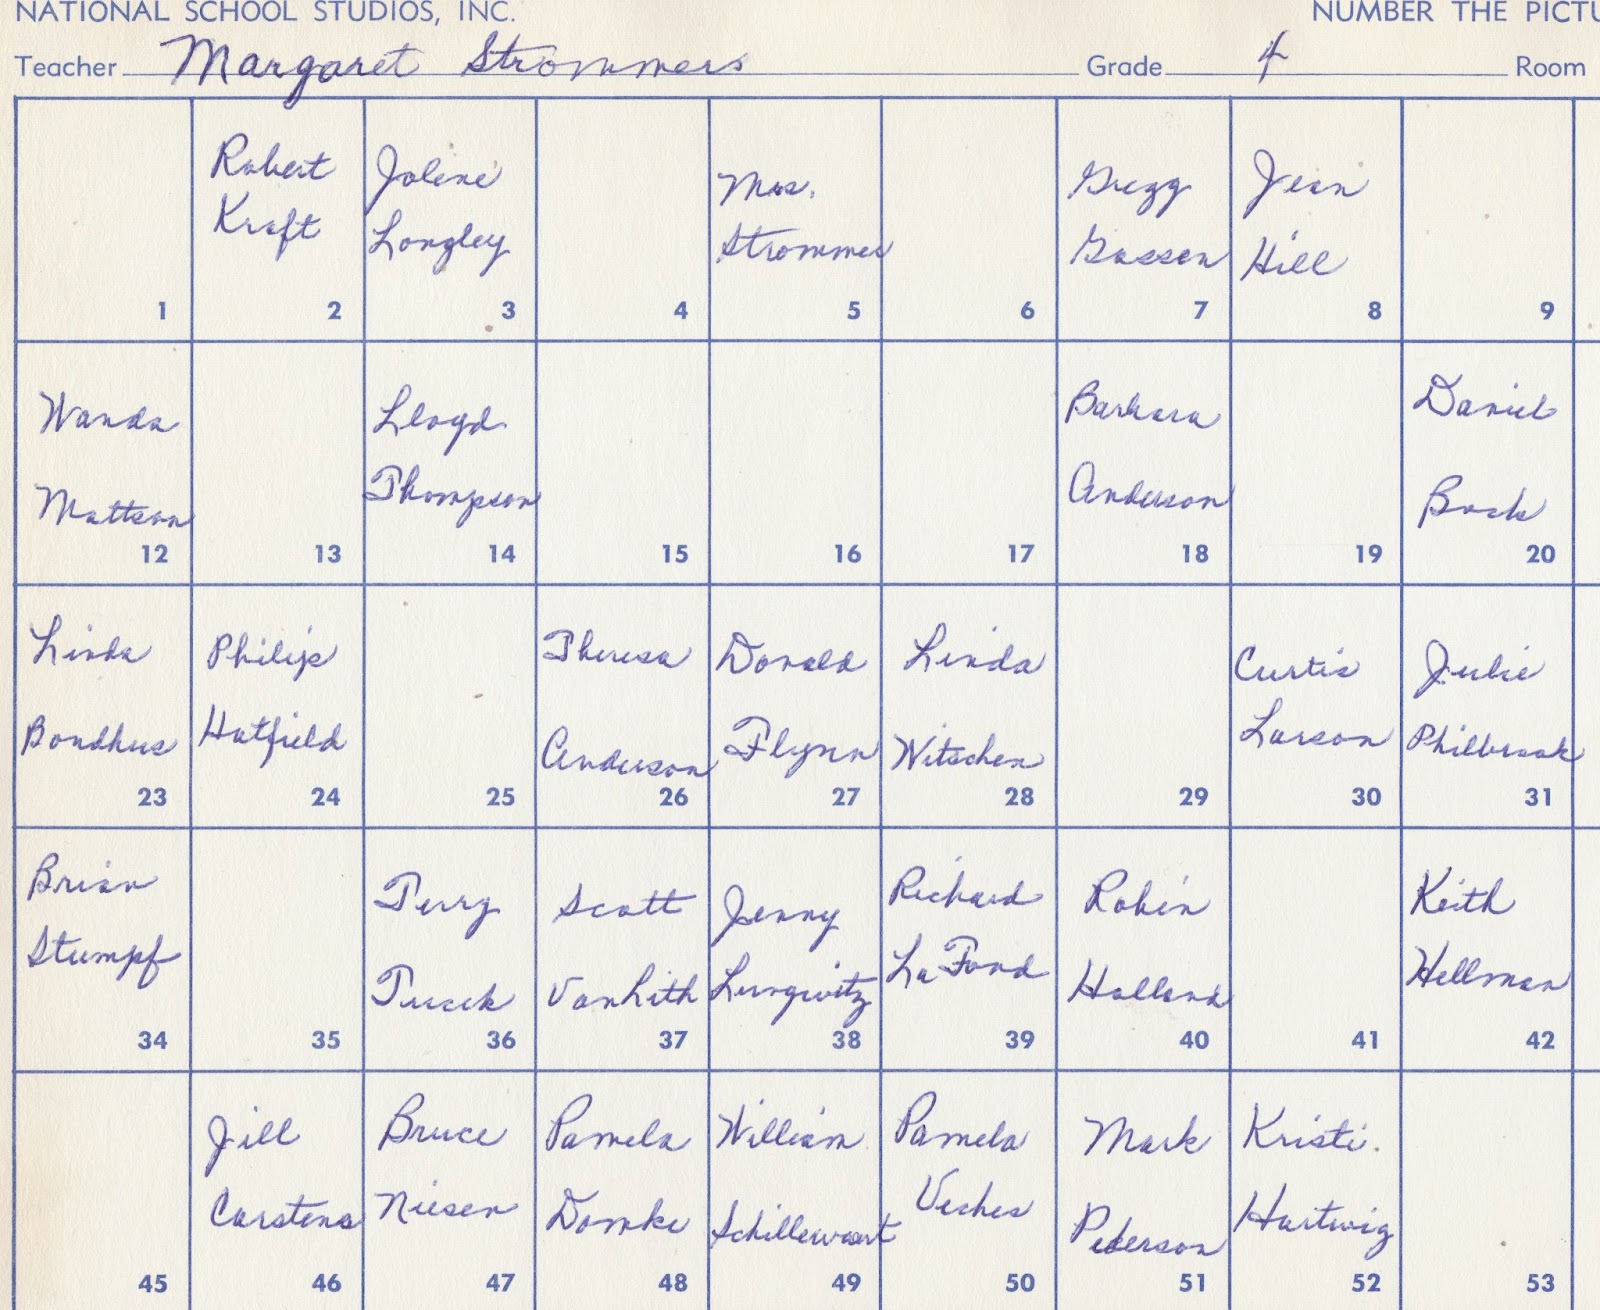 NATIONAL SCHOOL STUDIOS, INC. NUMBER THE PICTU
Teacher Margaret Strommers Grade 4 Room
Robert Jolene Mrs. Gregg Jean
Kraft Longley Strommer Gassen Hill
1 2 3 4 5 6 7 8 9
Wanda Lloyd Barbara Daniel
Mattson Thompson Anderson Bock
12 13 14 15 16 17 18 19 20
Linda Philip Theresa Donald Linda Curtis Julie
Bondhus Hatfield Anderson Flynn Witschen Larson Philbrook
23 24 25 26 27 28 29 30 31
Brian Terry Scott Jenny Richard Robin Keith
Stumpf Tucek VanLith Lungwitz LaFond Holland Hellman
34 35 36 37 38 39 40 41 42
Jill Bruce Pamela William Pamela Mark Kristi
Carstens Niesen Domke Veches Pederson Hartwig
45 46 47 48 49 50 51 52 53